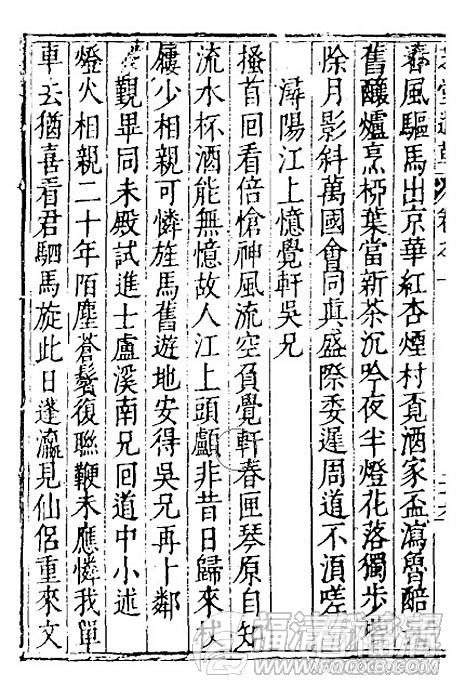 春風驅馬出京華紅杏煙村覔酒家盃瀉魯醅
舊釀爐烹柳葉當新茶沉吟夜半燈花落獨步
除月影斜萬國會同真盛際委遲周道不湏嗟
潯陽江上憶覺軒吳兄
搔首囘看倍愴神風流空負覺軒春匣琴原自知
流水杯酒能無憶故人江上頭顱非昔日歸來杖
屨少相親可憐旌馬舊遊地安得吳兄再卜鄰
覲畢同未殿試進士盧溪南兄囘道中小述
燈火相親二十年陌塵蒼鬢復聯鞭未應憐我單
車去猶喜看君駟馬旋此日蓬瀛見仙侶重來文